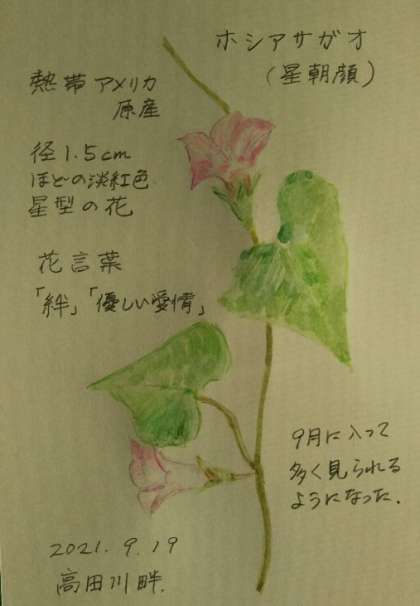 ホシアサガオ
(星朝顔)
熱帯アメリカ
原産
径1.5cm
ほどの淡紅色
星型の花
花言葉
「絆」「優しい愛情」
9月に入って
多く見られる
ようになった.
2021.9.19
高田川畔.